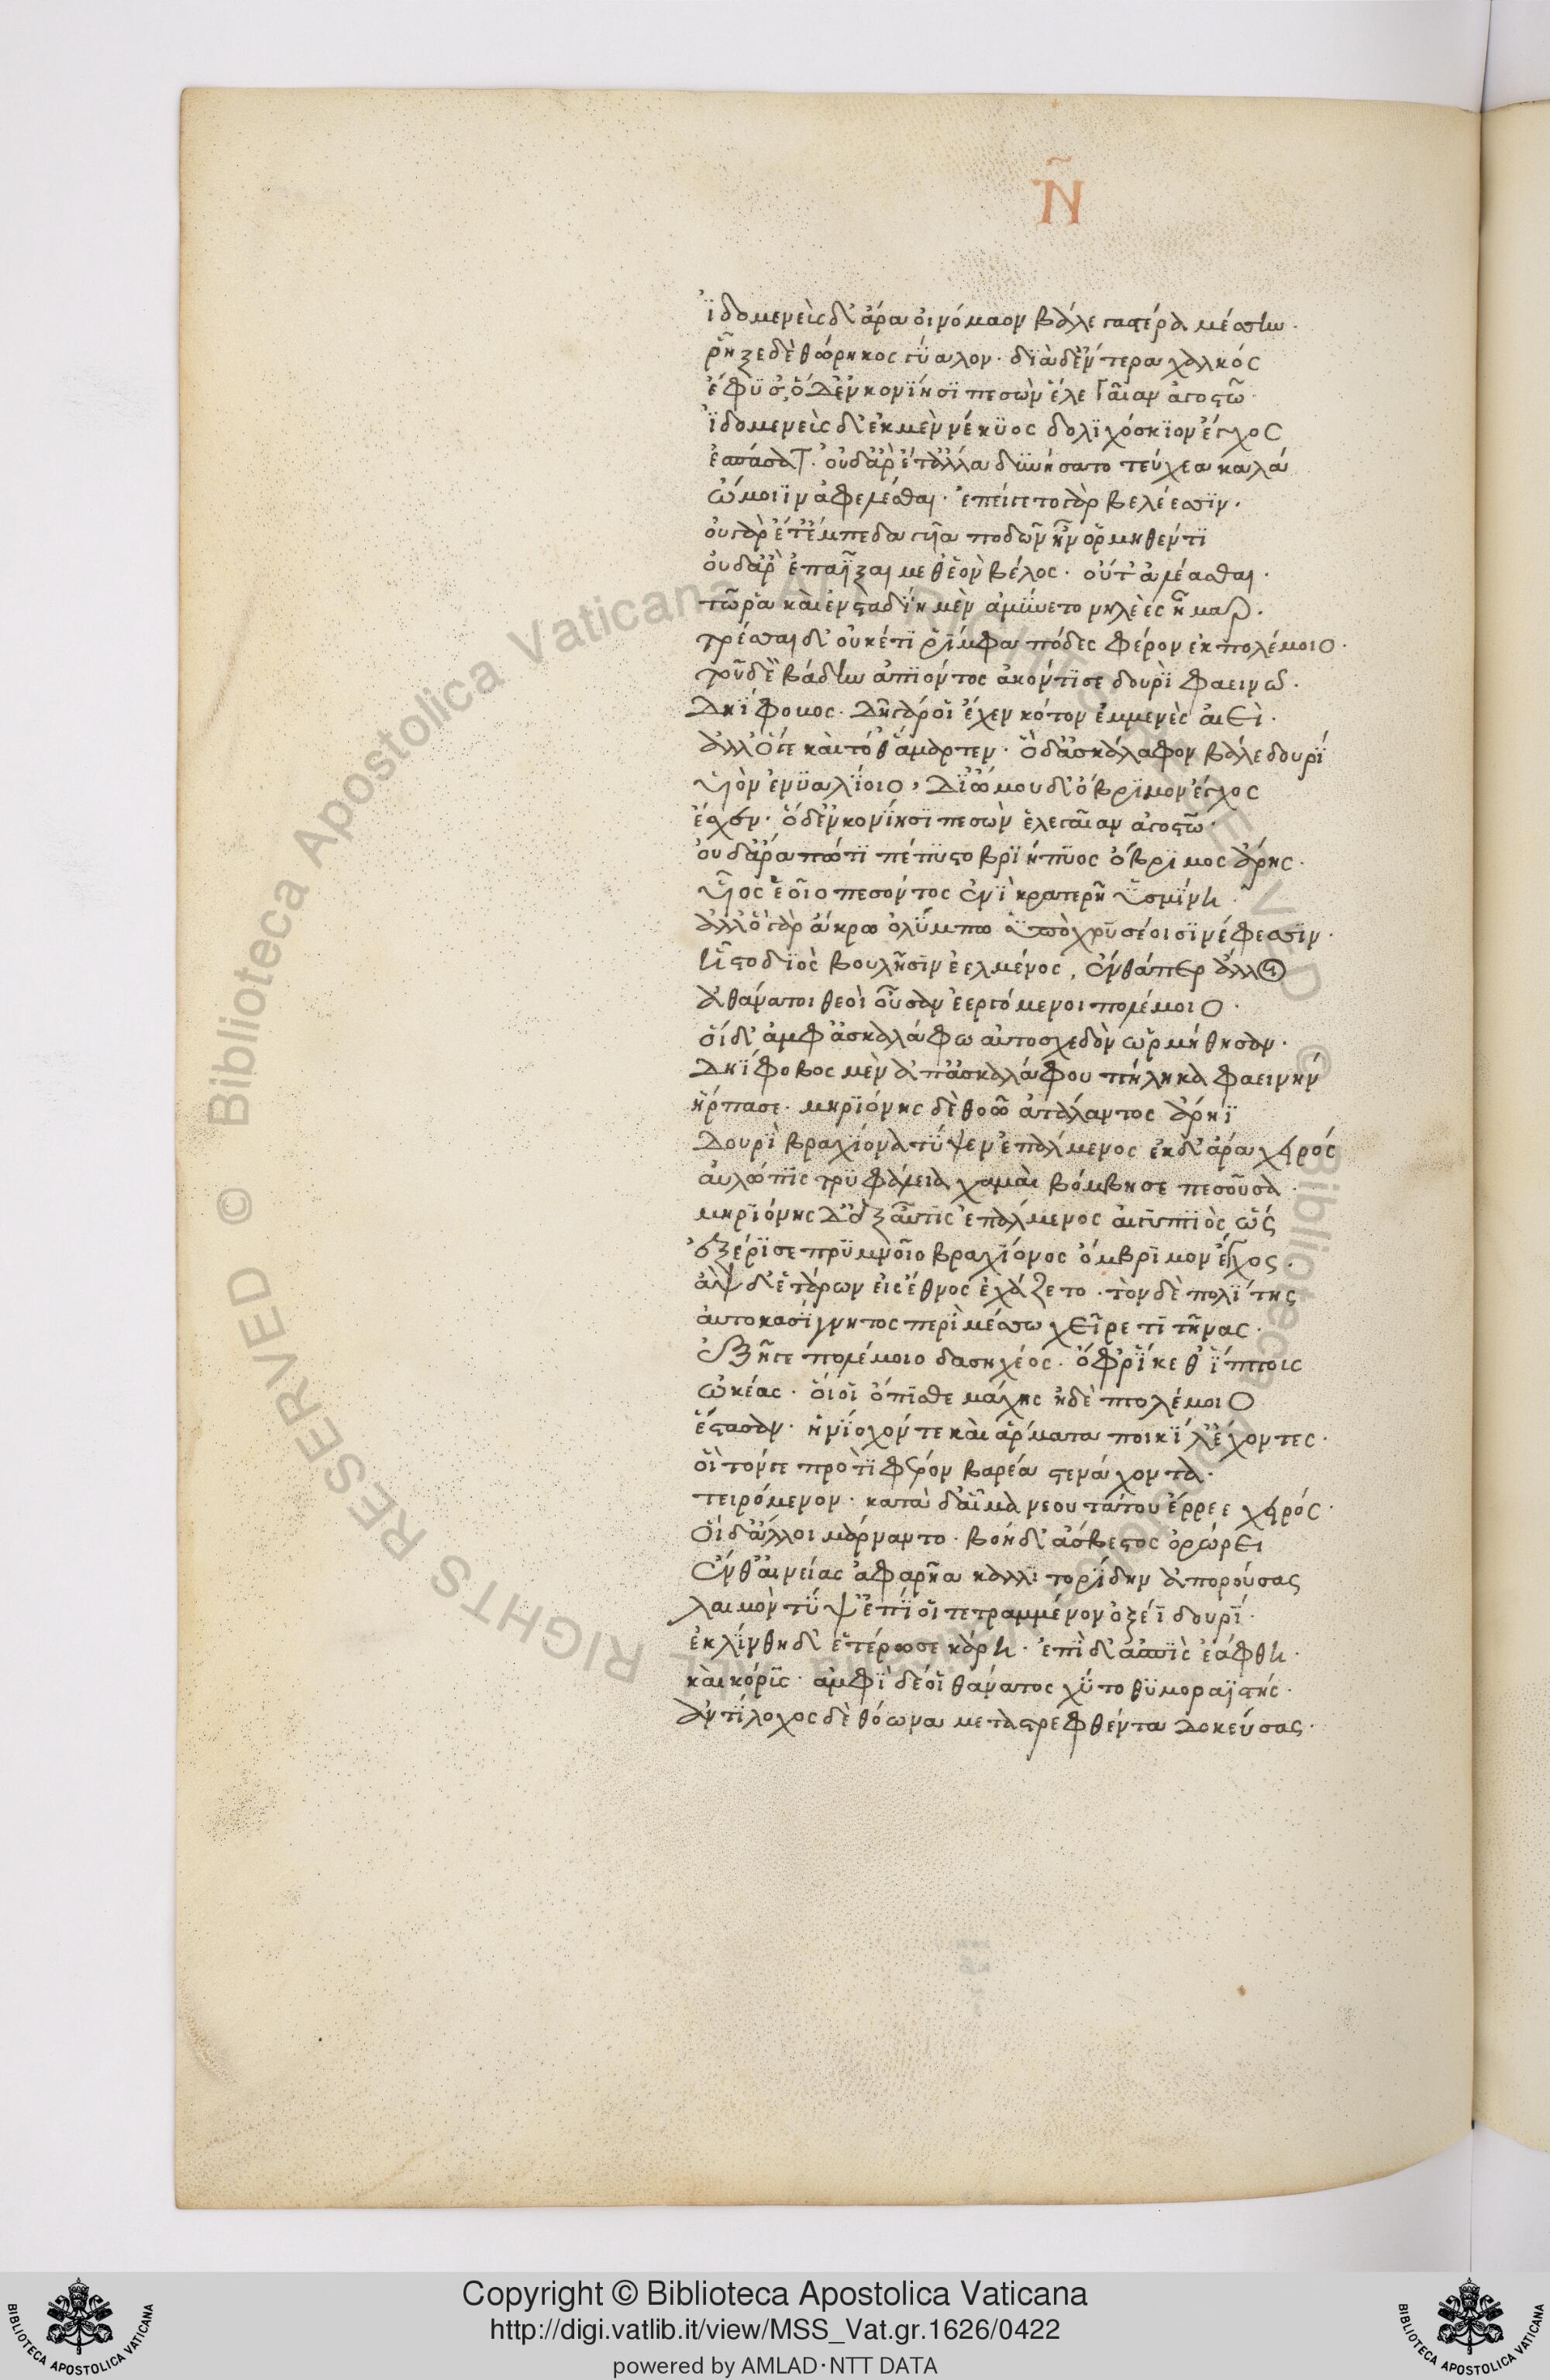 Ν
ϊδομενεὺς δ' ἄρα οἰνόμαον βάλε γαστέρα μέσσην·
ῥῆξε δὲ θώρηκος γύαλον· διὰ δ' ἔντερα χαλκός
ἤφυσ', ὁ δ' ἐν κονίῃσι πεσὼν ἕλε γαῖαν ἀγοστῶ·
ϊδομενεὺς δ' ἐκ μὲν νέκυος δολιχόσκιον ἔγχος
ἐσπάσατ'· οὐδ' ἄρ' ἔτ' ἄλλα δυνήσατο τεύχεα καλά
ὤμοιιν ἀφελέσθαι· ἐπείγετο γὰρ βελέεσσιν·
οὐ γὰρ ἔτ' ἔμπεδα γυῖα ποδῶν ἦν ὁρμηθέντι
οὐδ' ἄρ' ἐπαῖξαι μεθ' ἑὸν βέλος· οὔτ' ἀλέασθαι·
τῶ ῥα καὶ ἐν σταδίη μὲν ἀμύνετο νηλεὲς ἦμαρ·
τρέσσαι δ' οὐκέτι ῥίμφα πόδες φέρον ἐκ πολέμοιο·
τοῦ δὲ βάδην ἀπιόντος ἀκόντισε δουρὶ φαεινῶ·
Δηΐφοβος· δὴ γάρ οἱ ἔχεν κότον ἐμμενὲς αἰεὶ·
ἀλλ' ὅγε καὶ τόθ' ἅμαρτεν· ὁ δ' ἀσκάλαφον βάλε δουρί
υἱὸν ἐνυαλίοιο, δι' ὤμου δ' ὄβριμον ἔγχος
ἔσχεν· ὁ δ' ἐν κονίῃσι πεσὼν ἕλε γαῖαν ἀγοστῶ·
οὐδ' ἄρα πώ τι πέπυστο βριήπυος ὄβριμος ἄρης·
υἷος ἑοῖο πεσόντος ἐνὶ κρατερῆ ὑσμίνη·
ἀλλ' ὅ γὰρ ἄκρω ὀλύμπω ὑπὸ χρυσέοισι νέφεσσιν·
ἧστο διὸς βουλῆσιν ἐελμένος, ἔνθά περ ἄλλοι
ἀθάνατοι θεοὶ οὖσαν ἐεργόμενοι πολέμοιο·
οἱ δ' ἀμφ' ἀσκαλάφω αὐτοσχεδὸν ὡρμήθησαν·
Δηΐφοβος μὲν ἀπ' ἀσκαλάφου πήληκα φαεινήν
ἥρπασε· μηριόνης δὲ θοῶ ἀτάλαντος ἄρηϊ
Δουρὶ βραχίονα τύψεν ἐπάλμενος ἐκ δ' ἄρα χειρός
αὐλῶπις τρυφάλεια χαμαὶ βόμβησε πεσοῦσα·
μηριόνης δ' ἐξαῦτις ἐπάλμενος αἰγυπιὸς ὥς
ἐξέρυσε πρυμνοῖο βραχίονος ὄμβριμον ἔγχος·
ἂψ δ' ἑτάρων εἰς ἔθνος ἐχάζετο· τὸν δὲ πολίτης
αὐτοκασίγνητος περὶ μέσσω χεῖρε τιτῆνας·
ἐξῆγε πολέμοιο δυσηχέος· ὄφρ' ἵκεθ' ἵππους
ὠκέας· οἵ οἱ ὄπισθε μάχης ἠδὲ πτολέμοιο
ἕστασαν· ἡνίοχόν τε καὶ ἅρματα ποικίλ' ἔχοντες·
οἳ τόνγε προτὶ φέρον βαρέα στενάχοντα·
τειρόμενον· κατὰ δ' αἷμα νεουτάτου ἔρρεε χειρός·
Οἱ δ' ἄλλοι μάρναντο· βοὴ δ' ἄσβεστος ὀρώρει
Ἔνθ' αἰνείας ἀφαρῆα καλλιτορίδην ἀπορούσας
λαιμὸν τύψ' ἐπί οἱ τετραμμένον ὀξέϊ δουρί·
ἐκλίνθη δ' ἑτέρωσε κάρη· ἐπὶ δ' ἀσπὶς ἑάφθη·
καὶ κόρυς· ἀμφὶ δέ οἱ θάνατος χύτο θυμοραϊστής·
Ἀντίλοχος δὲ θόωνα μεταστρεφθέντα δοκεύσας·
© Biblioteca Apostolica Vaticana ALL RIGHTS RESERVED © Biblioteca Apostolica Vaticana ALL RIGHTS RESERVED
Copyright © Biblioteca Apostolica Vaticana
http://digi.vatlib.it/view/MSS_Vat.gr.1626/0422
powered by AMLAD·NTT DATA
BIBLIOTECA APOSTOLICA VATICANA
BIBLIOTECA APOSTOLICA VATICANA